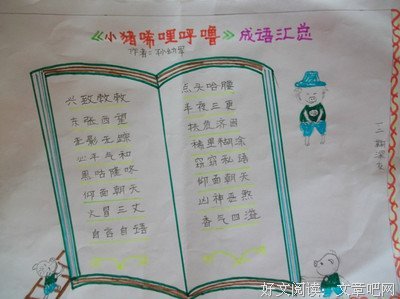 《小猪唏哩呼噜》成语汇总
作者:孙幼军
兴致勃勃
东张西望
无影无踪
心平气和
黑咕隆咚
仰面朝天
火冒三丈
自言自语
点头哈腰
半夜三更
扶危济困
稀里糊涂
窃窃私语
仰面朝天
凶神恶煞
香气四溢
好文阅读,文章吧网